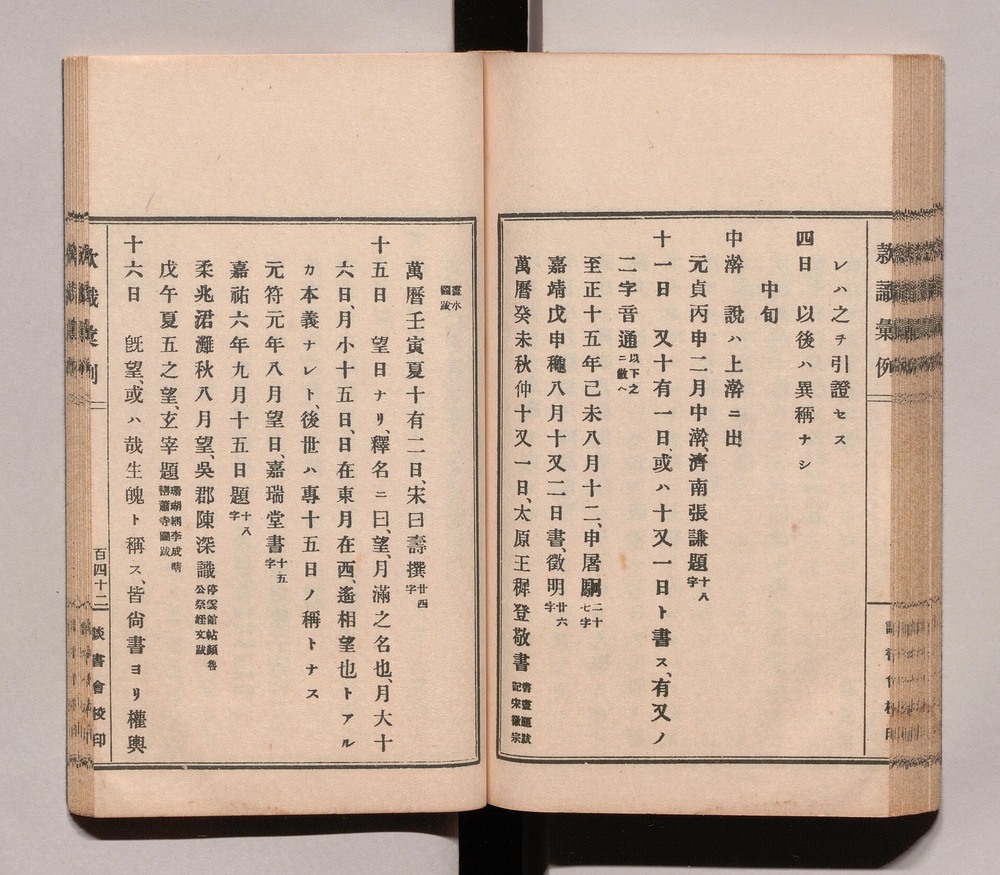 款識彙例
レハ之ヲ引證セス
四日　以後ハ異稱ナシ
中旬
中澣　說ハ上澣ニ出
元貞丙申二月中澣、濟南張謙題十八字
十一日　又十有一日、或ハ十又一日ト書ス、有又ノ
二字音通以下之ニ倣ヘ
至正十五年己未八月十二、申屠駉二十七字
嘉靖戊申穐八月十又二日書、徵明廿六字
萬曆癸未秋仲十又一日、太原王穉登敬書書畫題跋記宋徽宗
畫水圖跋
萬曆壬寅夏十有二日、宋曰壽撰廿四字
十五日　望日ナリ、釋名ニ曰、望、月滿之名也、月大十
六日、月小十五日、日在東月在西、遙相望也トアル
カ本義ナレト、後世ハ專十五日ノ稱トナス
元符元年八月望日、嘉瑞堂書十五字
嘉祐六年九月十五日題十八字
柔兆涒灘秋八月望、吳郡陳深識停雲館帖顏魯公祭姪文跋
戊午夏五之望、玄宰題珊瑚網李成晴巒蕭寺圖跋
十六日　旣望、或ハ哉生魄ト稱ス、皆尙書ヨリ權輿
款識彙例
百四十二
談書會校印